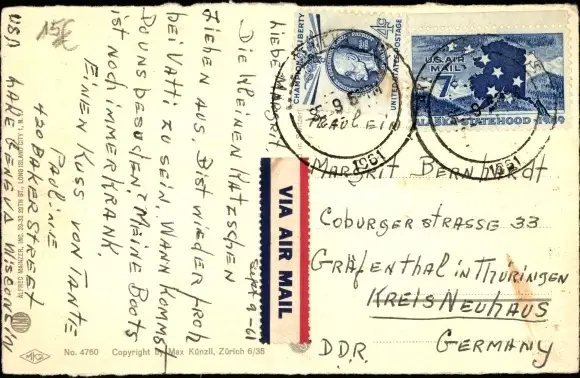 15€
Sept 9-61
Liebe Margrit
Die kleinen Katzschen
ziehen aus. Bist wieder froh
bei Vatti zu sein. Wann kommst
Du uns besuchen? Meine Boots
ist noch immer krank.
Einen Kuss von Tante
Pauline
420 Baker Street
Lake Geneva Wisconsin
USA
ALFRED MAINZER, INC. LONG ISLAND CITY 1, N.Y.
MKZ
No. 4760 Copyright by Max Künzli, Zürich 6/35
VIA AIR MAIL
CHAMPION OF LIBERTY
4¢
UNITED STATES POSTAGE
US AIR
MAIL
7¢
ALASKA STATEHOOD 1959
1961
1961
Fraulein
Margrit Bernhardt
Coburgerstrasse 33
Gräfenthal in Thüringen
Kreis Neuhaus
D.D.R. Germany